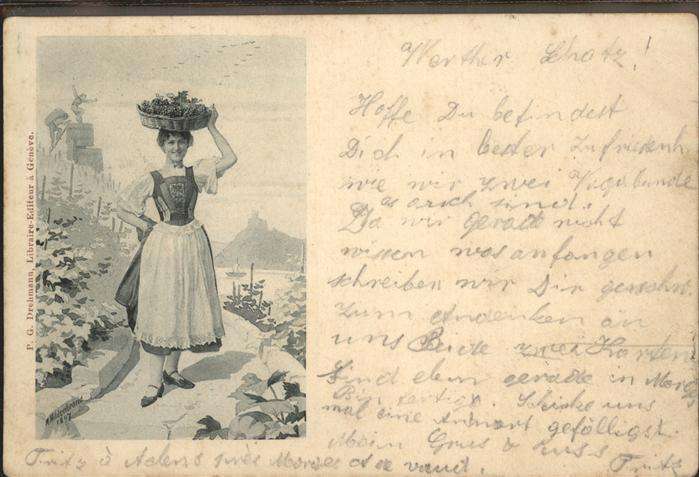 P. G. Drehmann, Libraire-Editeur à Genève.
1897
Werther Schatz!
Hoffe Du befindest
Dich in bester Zufriedenh
wie wir zwei Vagabunde
es auch sind.
Da wir gerade nicht
wissen was anfangen
schreiben wir Dir
zum Andenken an
uns Beide zwei Karten
Sind eben gerade in Mors
Bin fertig. Schicke uns
mal eine Antwort gefälligst.
Mein Grus & Kuss
Fritz
Fritz à Aclens près Morges ct de vaud.